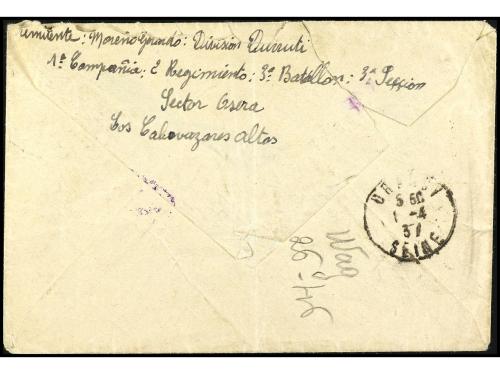 Remitente: Moreño Gerardo: Division Durruti
1ª Compañia: 2º Regimiento: 3º Batallon: 3ª Seccion
Sector Osera
Los Calavazares altos
5 50
1 -4
37
SEINE
Wag
26-46